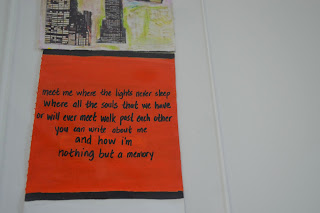 meet me where the lights never sleep
where all the souls that we have
or will ever meet walk past each other
you can write about me
and how i'm
nothing but a memory